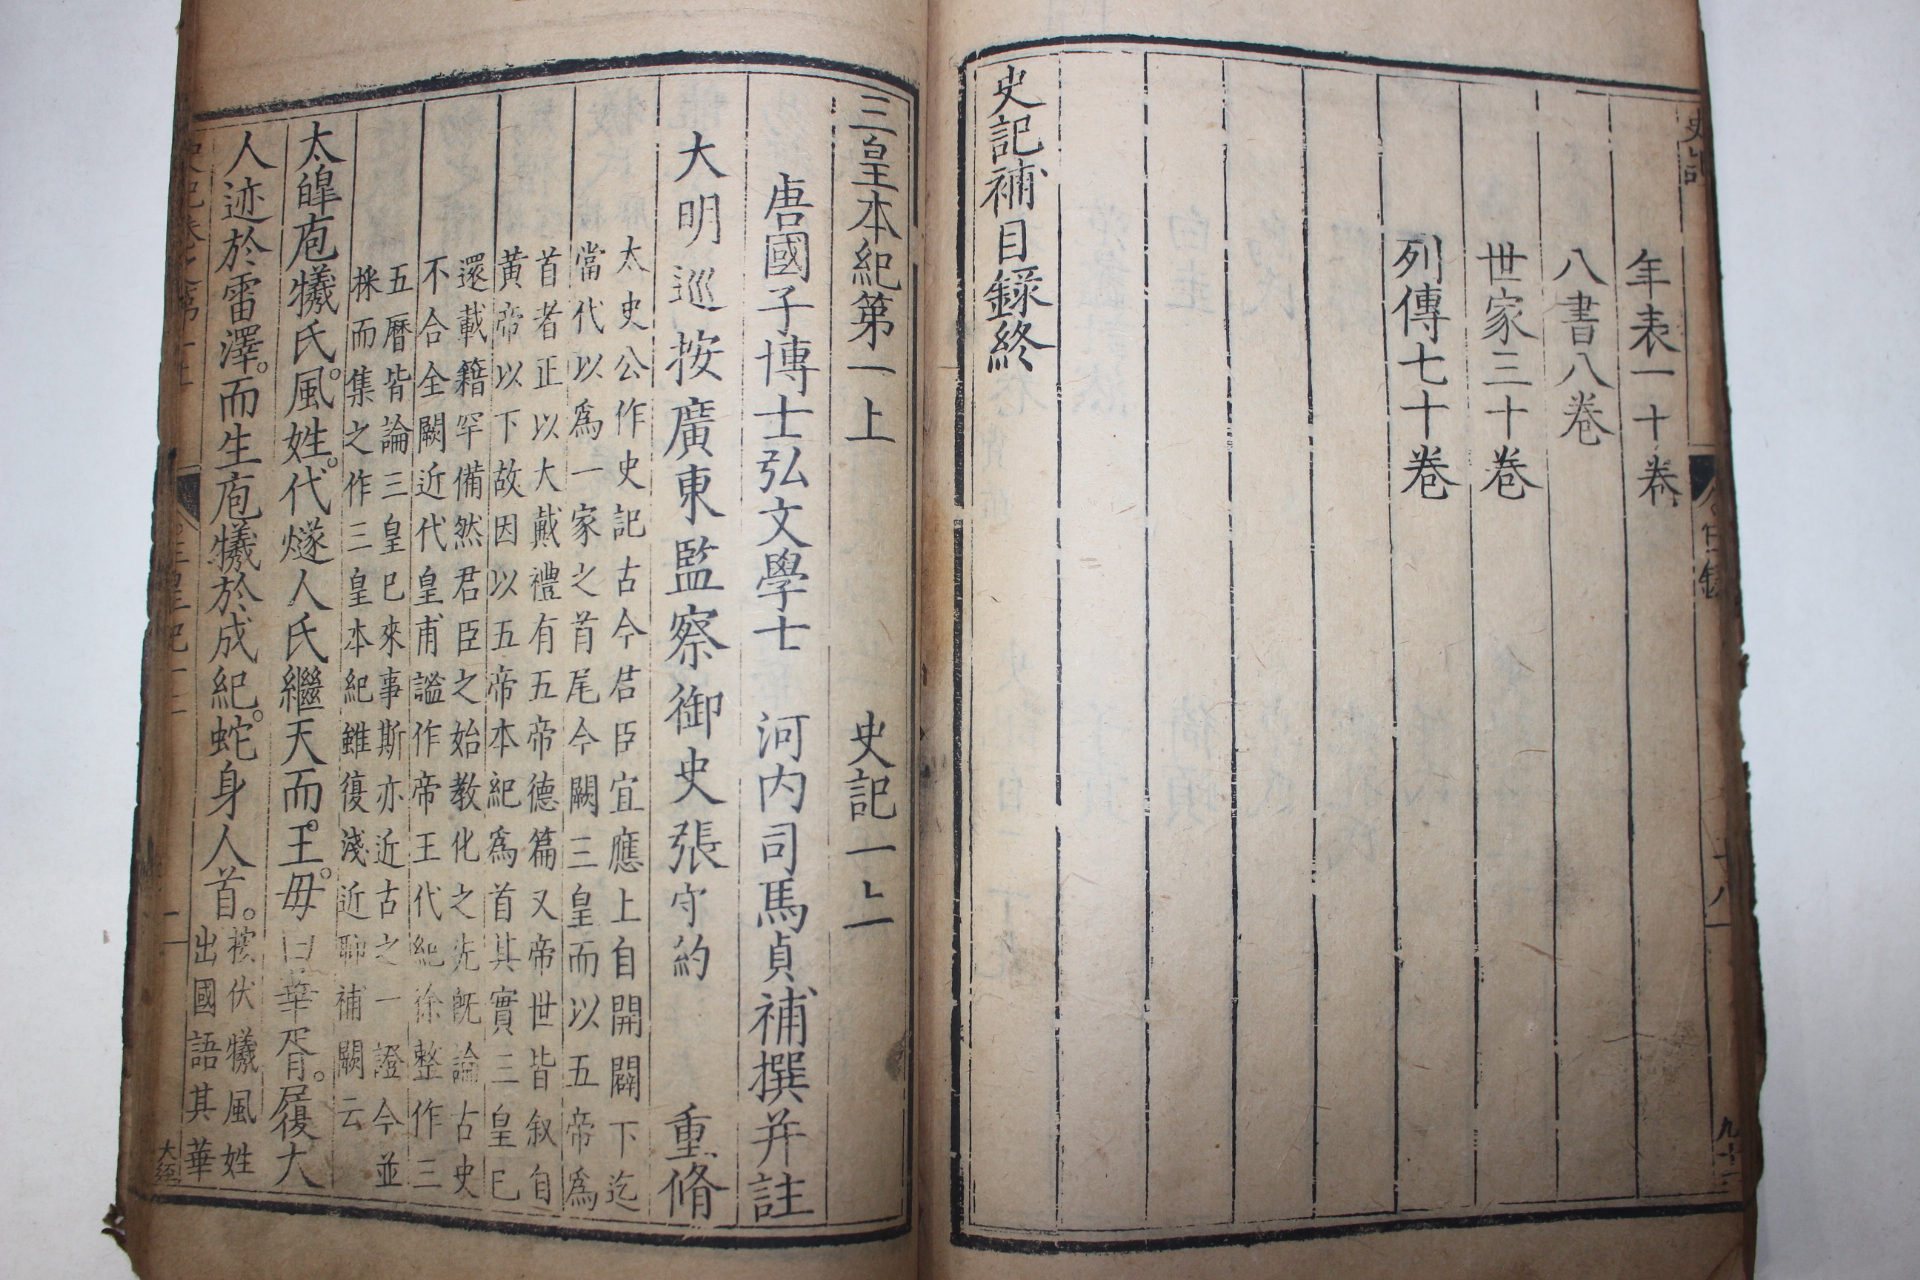 年表一十卷
八書八卷
世家三十卷
列傳七十卷
史記補目錄終
三皇本紀第一上 史記一上
唐國子博士弘文學士 河内司馬貞補撰并註
大明巡按廣東監察御史張守約 重脩
太史公作史記古今君臣宜應上自開闢下迄
當代以爲一家之首尾今闕三皇而以五帝爲
首者正以大戴禮有五帝德篇又帝世皆叙自
黃帝以下故因以五帝本紀爲首其實三皇已
還載籍罕備然君臣之始教化之先既論古史
不合全闕近代皇甫謐作帝王代紀徐整作三
五曆皆論三皇已來事斯亦近古之一證今並
採而集之作三皇本紀雖復淺近聊補闕云
太皥庖犧氏。風姓。代燧人氏繼天而。王。母曰華胥。履大
人迹於雷澤。而生庖犧於成紀。蛇身人首。
按伏犧風姓
出國語其華